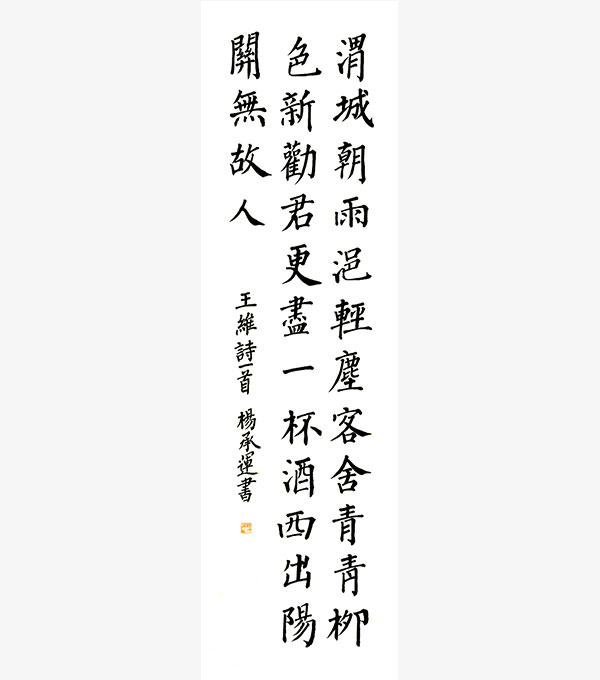 渭城朝雨浥輕塵客舍青青柳
色新勸君更盡一杯酒西出陽
關無故人
王維詩一首 楊承運書